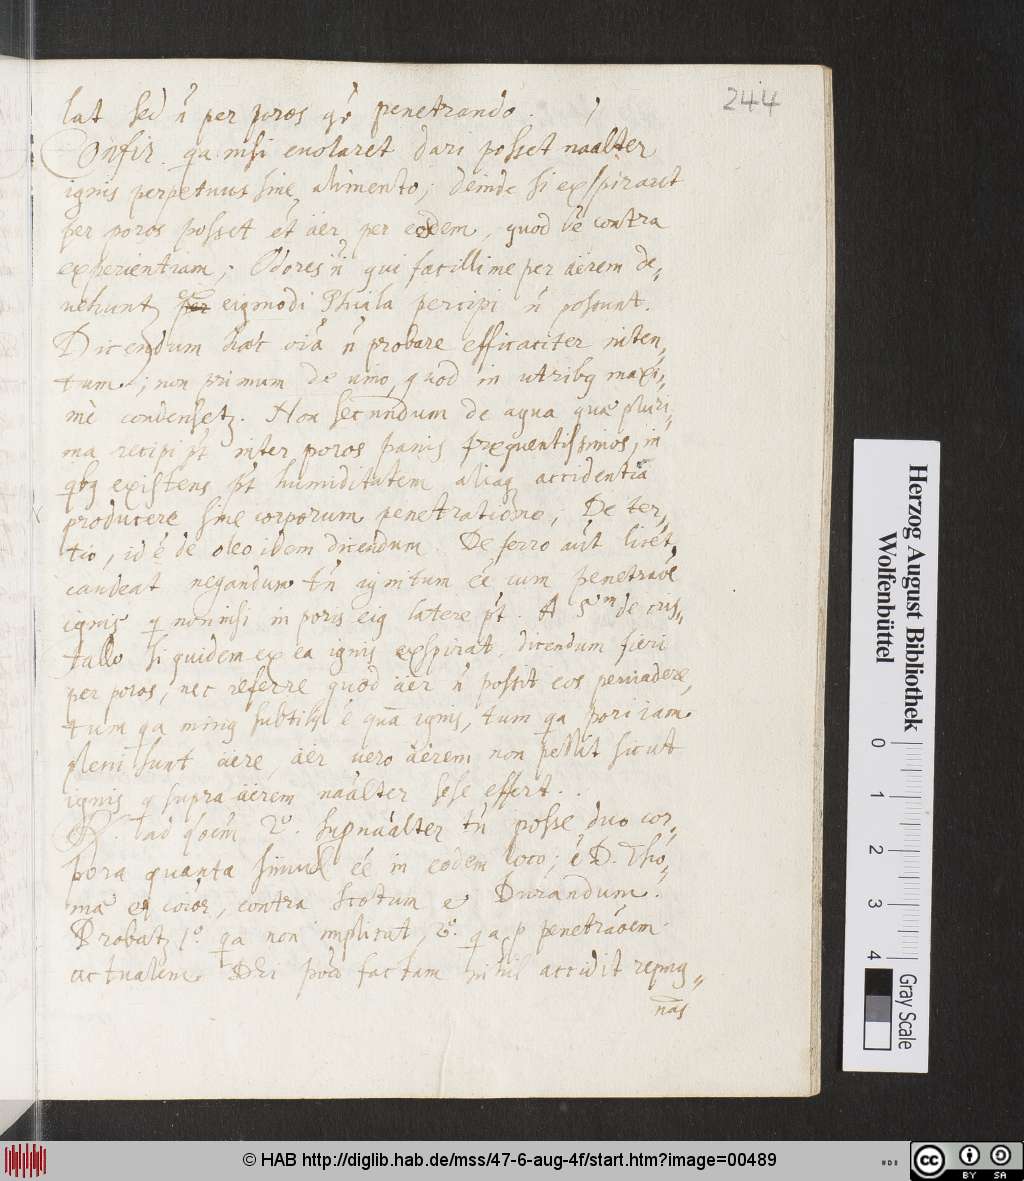 244
lat sed ñ per poros qȝ penetrando.
Confir. qa nisi euolaret dari posset naalter
ignis perpetuus sine alimento; deinde si exspiraret
per poros posset et aër per eodem, quod eē contra
experientiam; Odores ñ qui facillime per aërem de„
uehuntʒ per eiqmodi Phiala percipi ñ possunt.
Dicendum haec oīa ñ probare efficaciter inten„
tum; non primum de uino, quod in utribq maxi„
mè condensetʒ. Non secundum de aqua quae pluri„
ma recipi pt inter poros panis frequentissimos, in
qbq existens pt humiditatem aliaq accidentia
producere sine corporum penetratione; De ter„
tio, id ē de oleo idem dicendum. De ferro aūt licet
candeat negandum tñ ignitum eē cum penetrare
ignis q non nisi in poris eiq latere pt. A 5um de cris„
tallo si quidem ex ea ignis exspirat, dicendum fieri
per poros, nec referre quod aër ñ possit eos peruadere,
tum qa minq subtilis ē quā ignis, tum qa pori iam
pleni sunt aëre, aër uero aërem non pellit sicut
ignis q supra aërem naālter sese effert.
R. ad qoem 2o. supnaālter tñ posse duo cor„
pora quanta simul eē in eodem loco; ē D. Tho„
mae et coior, contra Scotum e Durandum.
Probatʒ 1o. qa non implicat, 2o. qa p penetrāoem
actualem Dei poā factam nihil accidit repug„
nās
Herzog August Bibliothek
Wolfenbüttel
0
1
2
3
4
Gray Scale
© HAB http://diglib.hab.de/mss/47-6-aug-4f/start.htm?image=00489
HAB
cc
BY
SA